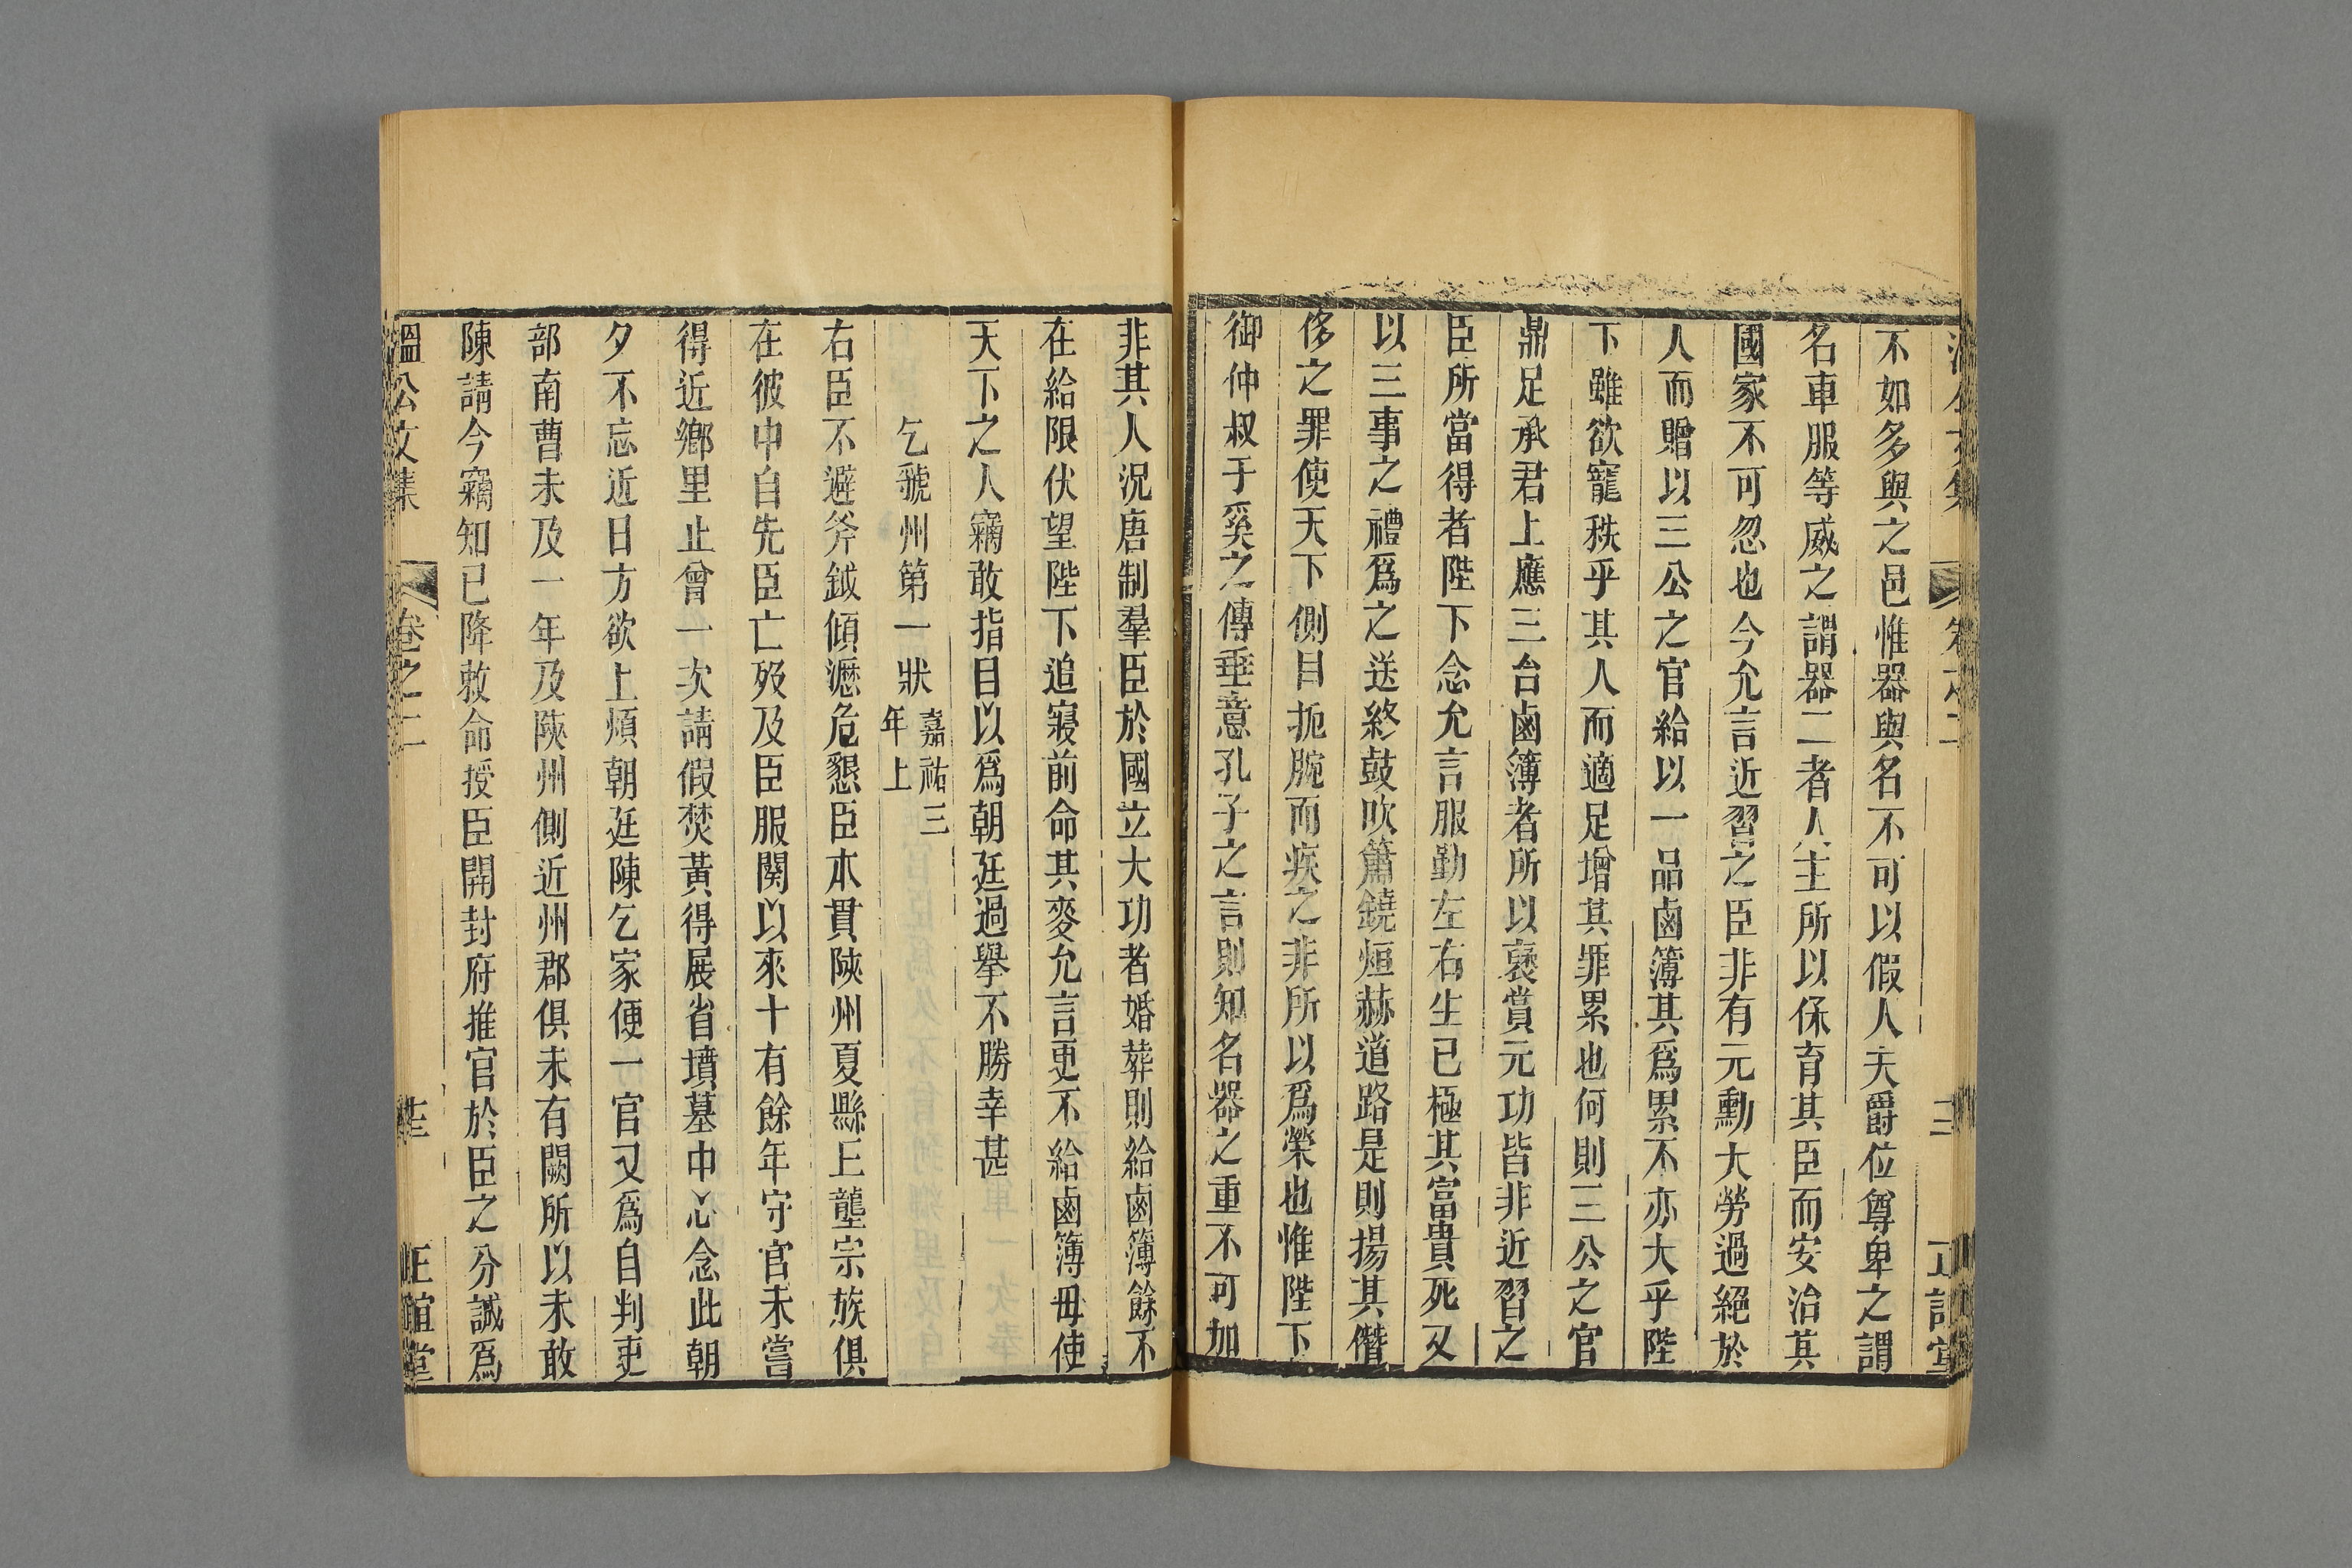 不如多與之邑惟器與名不可以假人夫爵位尊卑之謂
名車服等威之謂器二者人主所以保育其臣而安治其
國家不可忽也今允言近習之臣非有元勳大勞過絕於
人而贈以三公之官給以一品鹵簿其爲累不亦大乎陛
下雖欲寵秩乎其人而適足增其罪累也何則三公之官
鼎足承君上應三台鹵簿者所以襃賞元功皆非近習之
臣所當得者陛下念允言服勤左右生已極其富貴死又
以三事之禮爲之送終鼓吹簫鐃烜赫道路是則揚其僭
侈之罪使天下側目扼腕而疾之非所以爲榮也惟陛下
御仲叔于奚之傳垂意孔子之言則知名器之重不可加
非其人況唐制羣臣於國立大功者婚葬則給鹵簿餘不
在給限伏望陛下追寢前命其麥允言更不給鹵簿毋使
天下之人竊敢指目以爲朝廷過舉不勝幸甚
乞虢州第一狀嘉祐三年上
右臣不避斧鉞傾瀝危懇臣本貫陝州夏縣上壟宗族俱
在彼中自先臣亡歿及臣服闋以來十有餘年守官未嘗
得近鄉里止曾一次請假焚黃得展省墳墓中心念此朝
夕不忘近日方欲上煩朝廷陳乞家便一官又爲自判吏
部南曹未及一年及陝州側近州郡俱未有闕所以未敢
陳請今竊知已降敕命授臣開封府推官於臣之分誠爲
溫公文集 卷之二 正誼堂